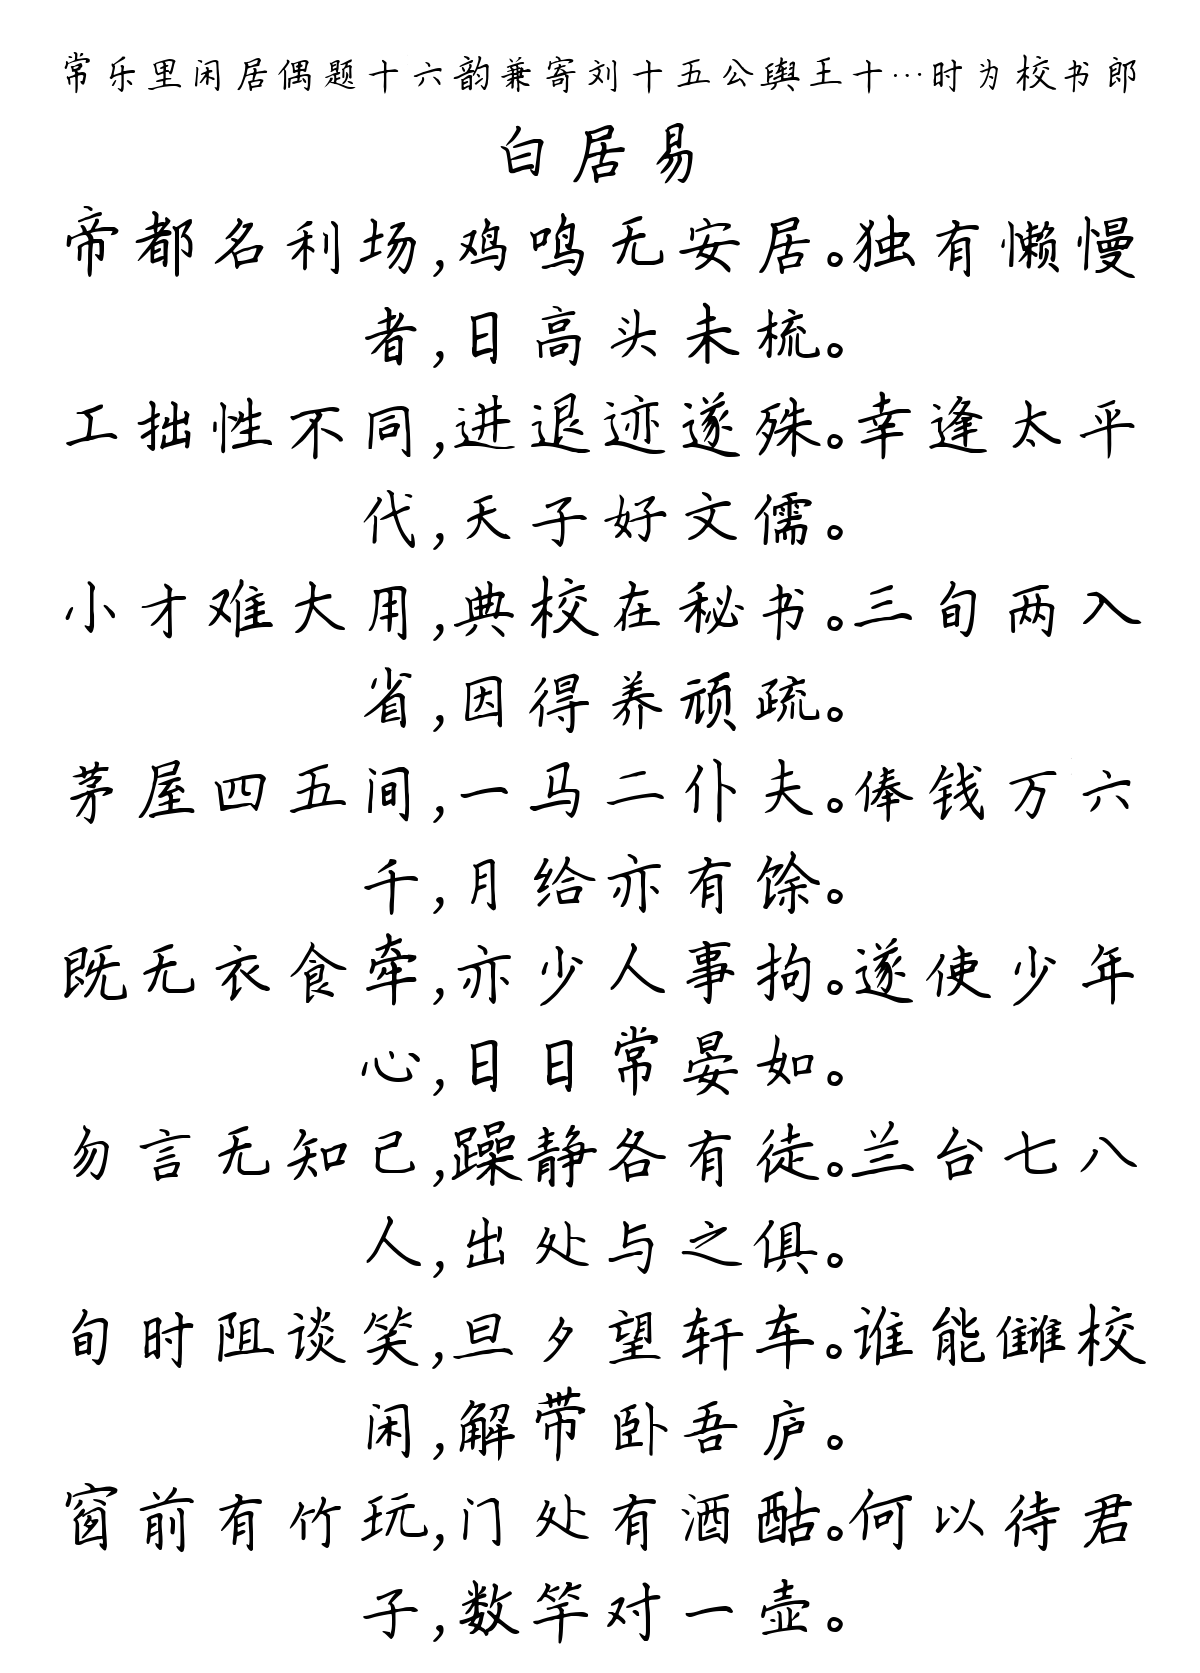 常乐里闲居偶题十六韵兼寄刘十五公舆王十…时为校书郎
白居易
帝都名利场,鸡鸣无安居。独有懒慢
者,日高头未梳。
工拙性不同,进退迹遂殊。幸逢太平
代,天子好文儒。
小才难大用,典校在秘书。三旬两入
省,因得养顽疏。
茅屋四五间,一马二仆夫。俸钱万六
千,月给亦有馀。
既无衣食牵,亦少人事拘。遂使少年
心,日日常晏如。
勿言无知己,躁静各有徒。兰台七八
人,出处与之俱。
旬时阻谈笑,旦夕望轩车。谁能雠校
闲,解带卧吾庐。
窗前有竹玩,门处有酒酤。何以待君
子,数竿对一壶。